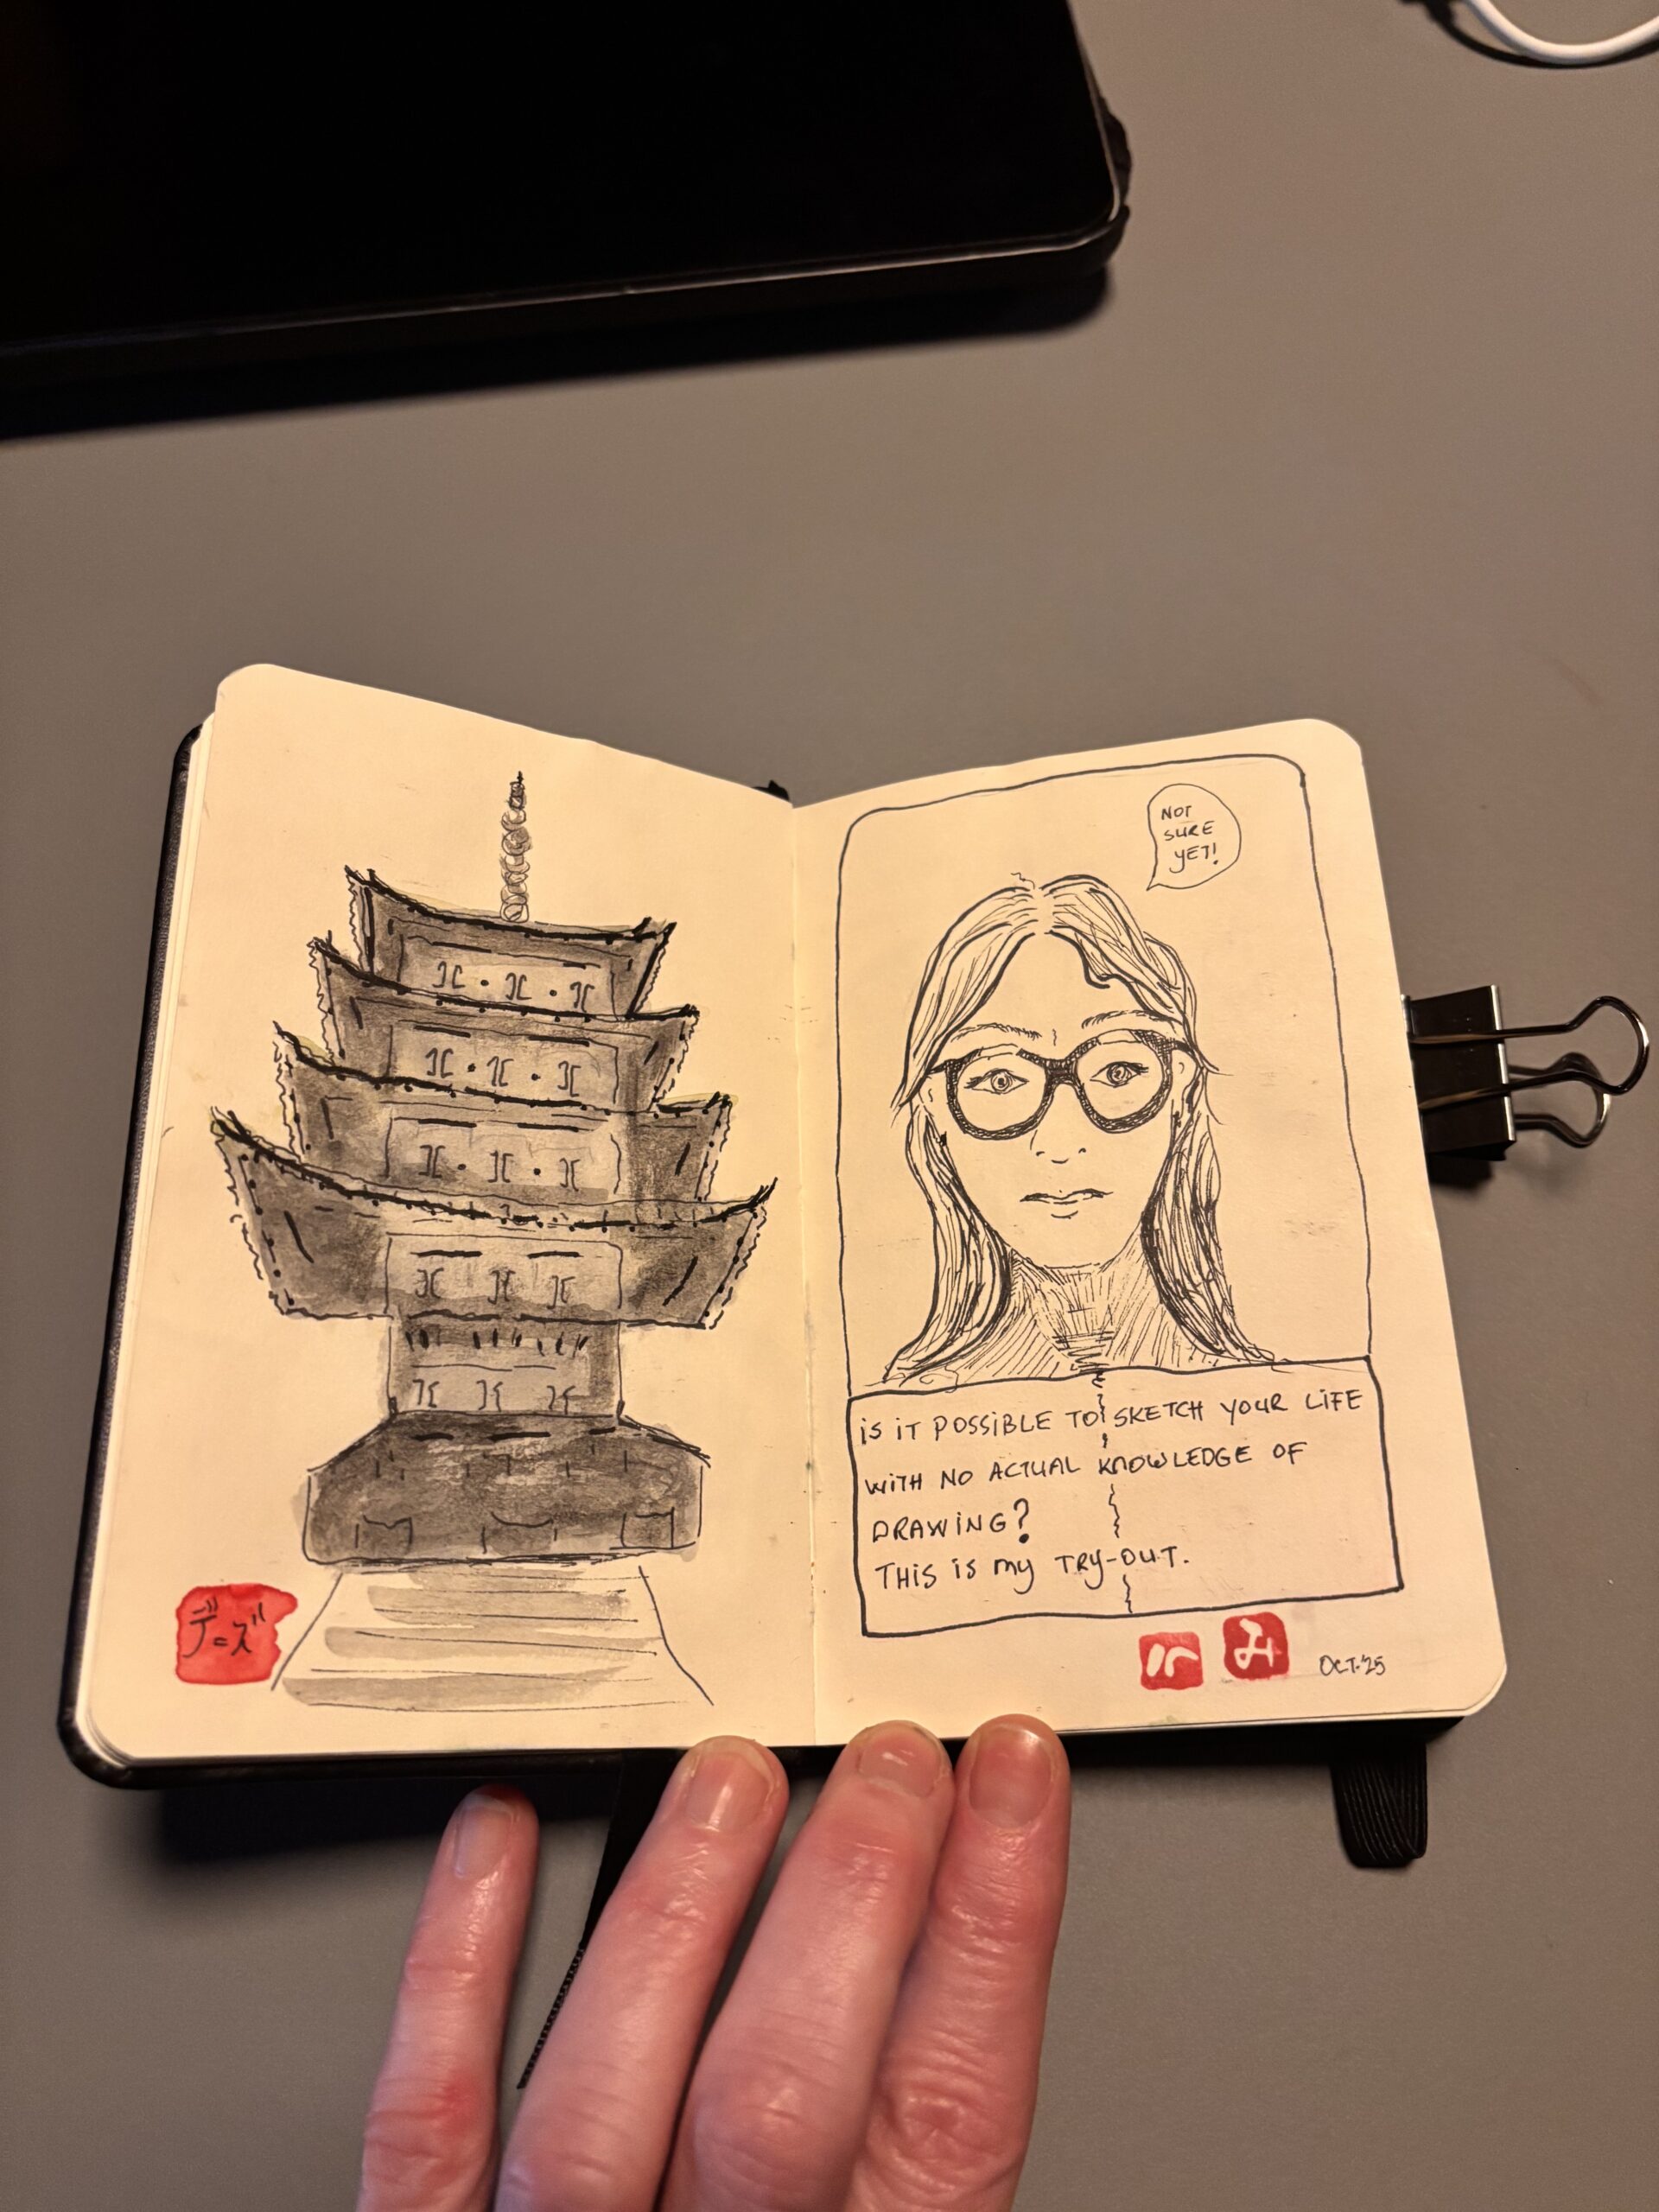 デニズ
NOT
SURE
YET!
iS iT POSSiBLE TO SKETCH YOUR LiFE
WiTH NO ACTUAL KNOWLEDGE OF
DRAWiNG?
THiS is my TRY-OUT.
み
OCT.'25